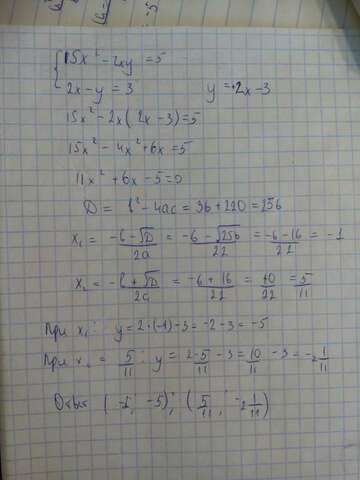 {15x² - 2xy = 5
2x - y = 3 y = 2x - 3
15x² - 2x(2x - 3) = 5
15x² - 4x² + 6x = 5
11x² + 6x - 5 = 0
D = b² - 4ac = 36 + 220 = 256
x₁ = (-b - √D)/2a = (-6 - √256)/22 = (-6 - 16)/22 = -1
x₂ = (-b + √D)/2a = (-6 + 16)/22 = 10/22 = 5/11
При x₁: y = 2·(-1) - 3 = -2 - 3 = -5
При x₂ = 5/11: y = 2·5/11 - 3 = 10/11 - 3 = -2 1/11
Ответ (-1; -5); (5/11; -2 1/11)